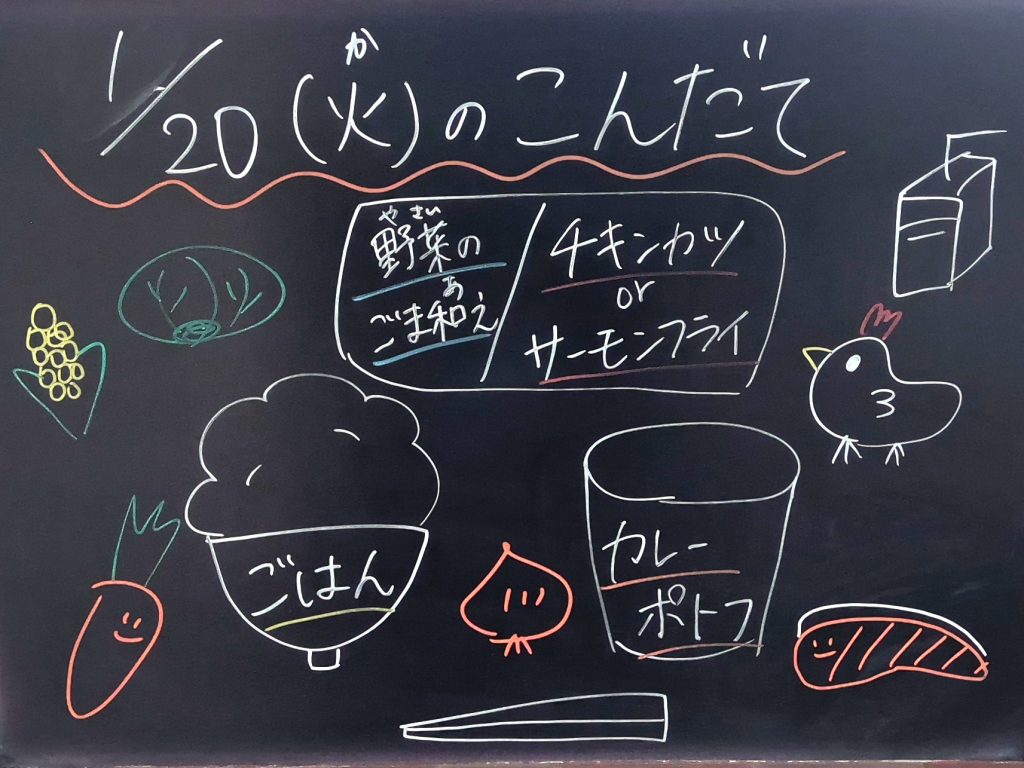 1/20(火)のこんだて
か
やさい
野菜の
あ
ごま和え
チキンカツ
or
サーモンフライ
ごはん
カレー
ポトフ